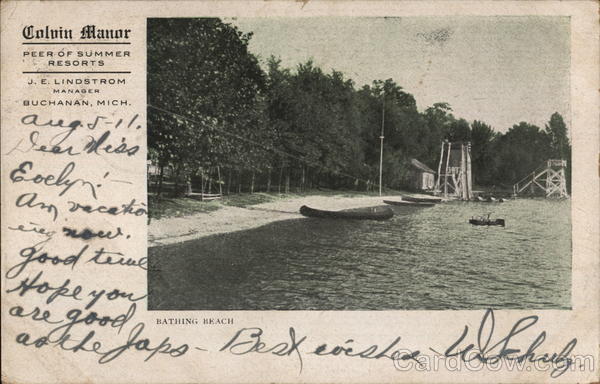 Colvin Manor
PEER OF SUMMER
RESORTS
J. E. LINDSTROM
MANAGER
BUCHANAN, MICH.
Aug 5-11.
Dear Miss
Evelyn!
Am vacation
ing now.
good time
Hope you
are good
as the Japs-
Best wishes- W Schulz.
BATHING BEACH
CardCow.com